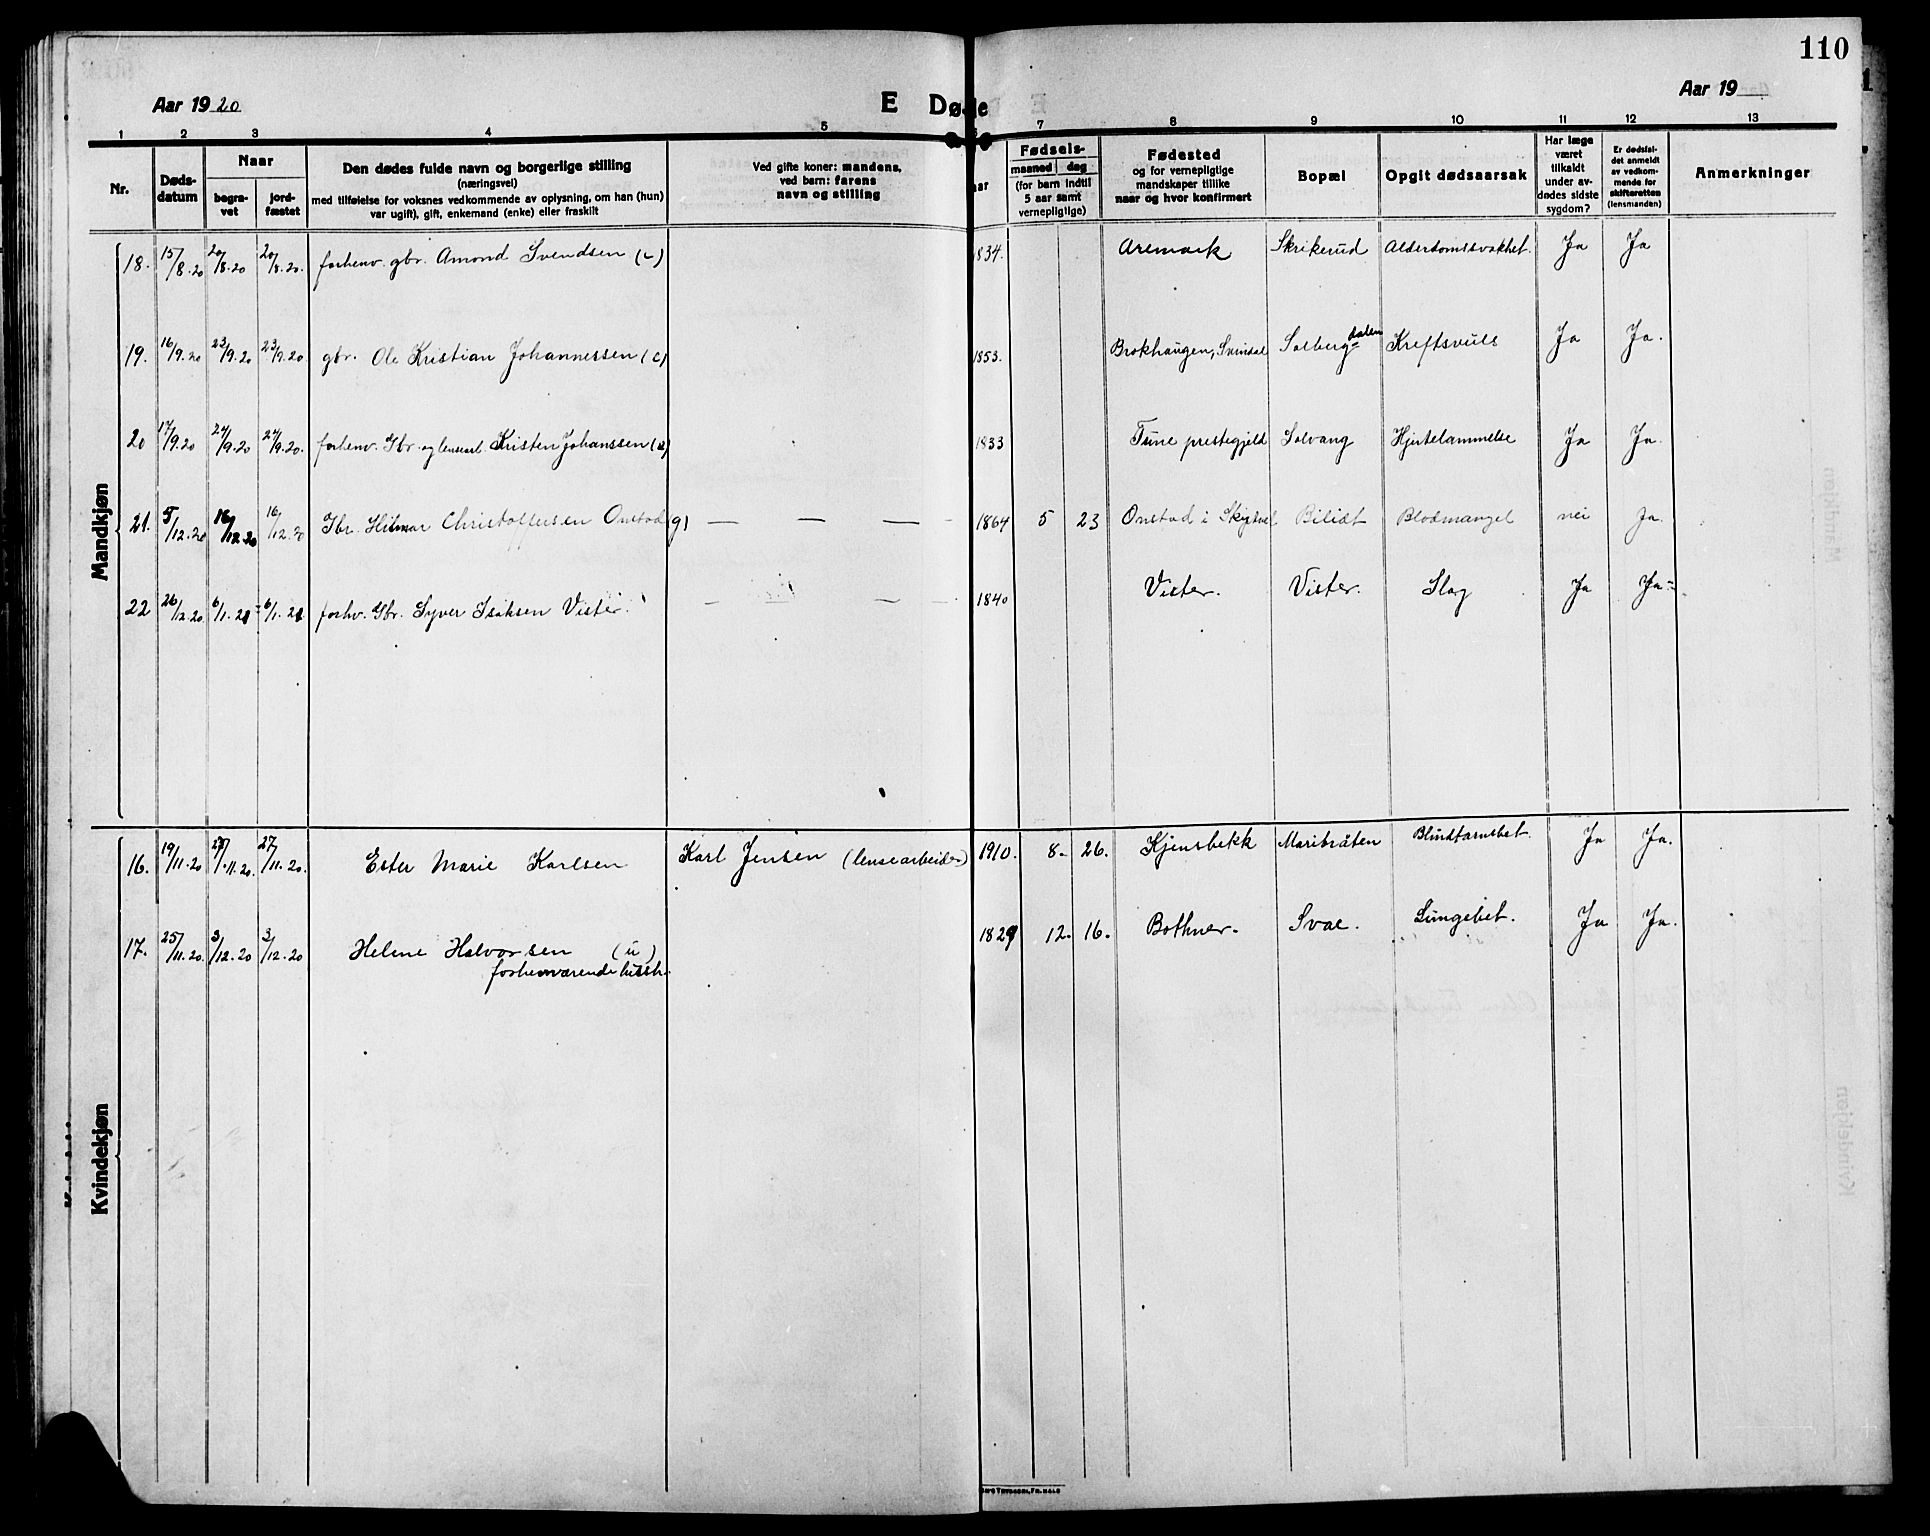 110
Aar 1920
E Døde
Aar 19
1 2 3 4 5 6 7 8 9 10 11 12 13
Nr.
Døds-
datum
Naar
begra-
vet
jord-
fæstet
Den dødes fulde navn og borgerlige stilling
(næringsvei)
med tilføielse for voksnes vedkommende av oplysning, om han (hun)
var ugift), gift, enkemand (enke) eller fraskilt
Ved gifte koner: mandens,
ved barn: farens
navn og stilling
aar
Fødsels-
maaned dag
(for barn indtil
5 aar samt
vernepligtige)
Fødested
og for vernepligtige
mandskaper tillike
naar og hvor konfirmert
Bopæl
Opgit dødsaarsak
Har læge
været
tilkaldt
under av-
dødes sidste
sygdom?
Er dødsfal-
det anmeldt
av vedkom-
mende for
skifteretten
(lensmanden)
Anmerkninger
Mandkjøn
18. 15/8.20 20/8.20 20/8.20. forhenv. gbr. Amond Svendsen 1834. Aremark Skrikerud Alderdomssvakhet. Ja Ja
19. 16/9.20 23/9.20 23/9.20. gbr. Ole Kristian Johannessen (e) 1853. Brokhaugen, Svindal Solberg dalen Kreftsvuls Ja Ja.
20 17/9.20 24/9.20 24/9.20. forhenv. Gbr. og lensearb. Kristen Johanssen 1833 Tune prestegjeld Solvang Hjertelammelse Ja Ja.
21. 5/12.20 16/12.20 16/12.20 Gbr. Hilmar Christoffersen Onstad (g) — — — — 1864 5 23 Onstad i Skiptvet Bilidt Blodmangel nei Ja.
22 26/12.20 6/1.21 6/1.21 forhv. Gbr. Syver Isaksen Vister. — — — 1840 Vister. Vister. Slag Ja Ja
Kvindekjøn
16. 19/11.20 27/11.20. 27/11.20. Ester Marie Karlsen Karl Jensen (lensearbeider) 1910. 8. 26. Kjensbekk Maribråten Blindtarmsbet. Ja Ja.
17. 25/11.20. 3/12.20 3/12.20 Helene Halvorsen (u) 1829 12. 16. Bothner. Svae. Lungebet. Ja Ja.
forhenværende hush.